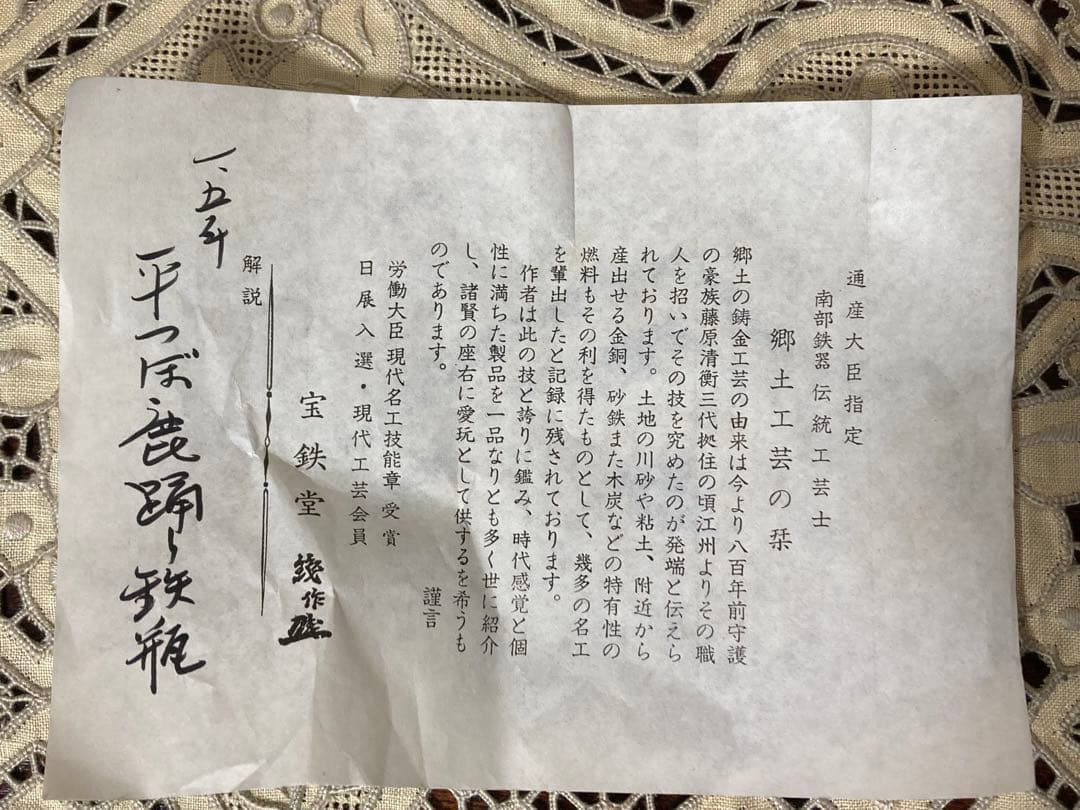 通産大臣指定
南部鉄器 伝統工芸士
郷土工芸の栞
郷土の鋳金工芸の由来は今より八百年前守護
の豪族藤原清衡三代拠住の頃江州よりその職
人を招いでその技を究めたのが発端と伝えら
れております。土地の川砂や粘土、附近から
産出せる金銅、砂鉄また木炭などの特有性の
燃料もその利を得たものとして、幾多の名工
を輩出したと記録に残されております。
作者は此の技と誇りに鑑み、時代感覚と個
性に満ちた製品を一品なりとも多く世に紹介
し、諸賢の座右に愛玩として供するを希うも
のであります。
謹言
労働大臣 現代名工技能章 受賞
日展入選・現代工芸会員
宝鉄堂
作
解説
平つぼ鹿踊り鉄瓶
一、五